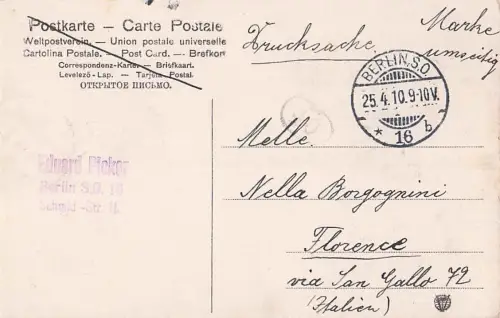 Postkarte – Carte Postale
Weltpostverein. – Union postale universelle
Cartolina Postale. – Post Card. – Brefkort
Correspondenz-Karte. – Briefkaart.
Levelező-Lap. – Tarjeta Postal.
ОТКРЫТОЕ ПИСЬМО.
Drucksache.
Marke
umseitig
BERLIN, S.O.
25.4.10.9-10V.
* 16 b
Eduard
Berlin S.O. 16
Melle.
Nella Borgognini
Florence
via San Gallo 72
(Italien)